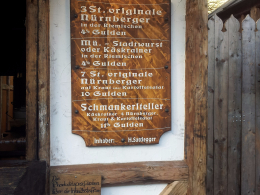 3 St. originale
Nürnberger
in der Riemischen
4½ Gulden
Mü. - Stadtwurst
oder Käskrainer
in der Riemischen
4½ Gulden
7 St. originale
Nürnberger
auf Kraut u. Kartoffelsalat
10 Gulden
Schmankerlteller
Käskrainer, 4 Nürnberger,
Kraut & Kartoffelsalat
11½ Gulden
Inhaber: